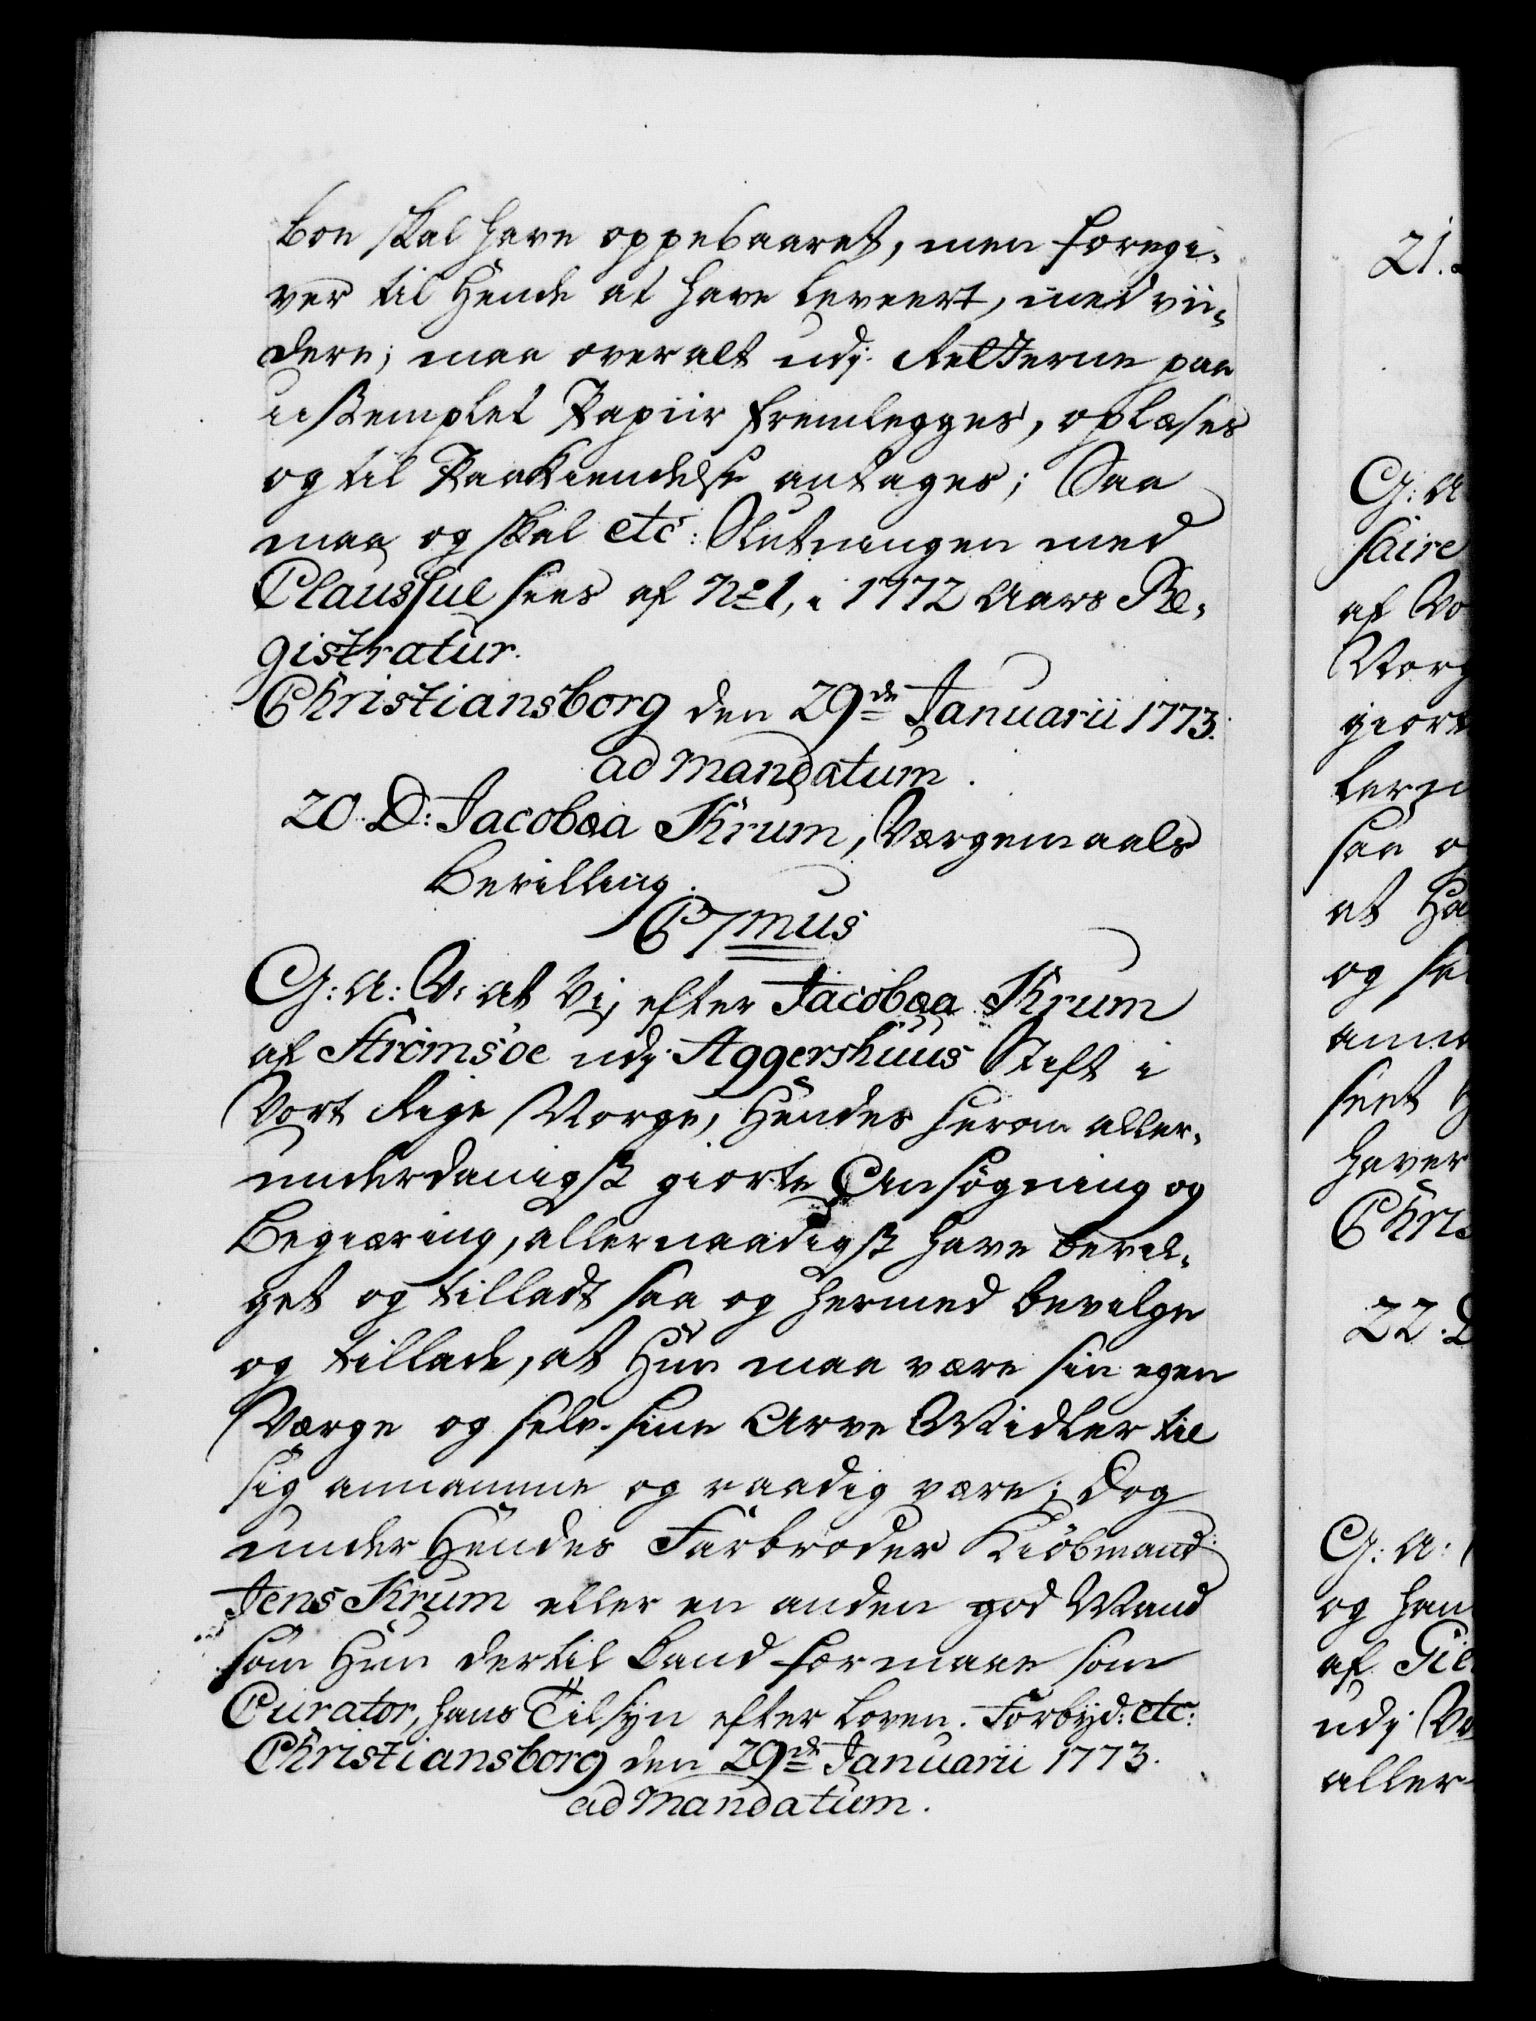 boe skal have oppebaaret, men foregi-
ver til Hende at have leveert, med vii-
dere; maa overalt udj Retterne paa
ustemplet Papiir fremlegges, oplæses
og til Paakiendelse antages; Saa
maa og skal etc: Slutningen med
Claussul sees af No 1, i 1772 Aars Re-
gistratur.
Christiansborg den 29de Januarii 1773.
ad mandatum.
20. D: Jacobæa Krum, Værgemaals
Bevilling.
C7mus
G: A: V: at Vi, efter Jacobæa Krum
af Strømsöe udj Aggershuus Stift i
Vort Rige Norge, Hendes herom aller-
underdanigst giorte Ansøgning og
Begiæring, allernaadigst have bevil-
get og tilladt saa og hermed bevilge
og tillade, at Hun maa være sin egen
Værge og selv sine Arve Midler til
sig annamme og raadig være; dog
under Hendes Farbroder Kiöbmand
Jens Krum eller en anden god Mand
som Hun dertil kand formaae som
Curator, hans Tilsyn efter Loven. Forbyd: etc:
Christiansborg den 29de Januarii 1773.
ad mandatum.
21.
G: A
saire
af Vo
Norg
giort
lern
saa o
at Ha
og se
anno
seet
haver
Chris
22. D
G: A:
og han
af Giel
udj Vo
aller-